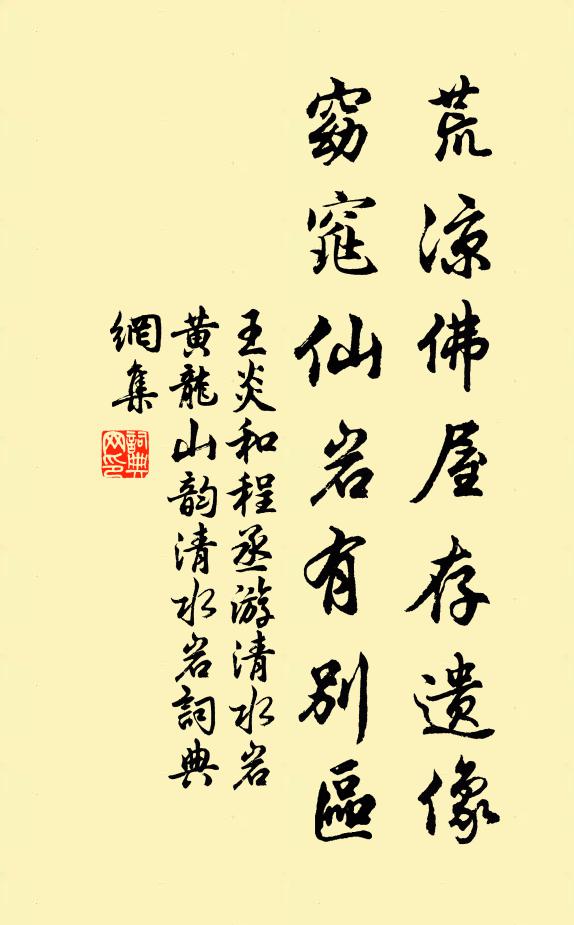 荒涼佛屋存遺像
窈窕仙岩有別區
王炎和程丞游清水岩
黄龍山韵清水岩詞典
網集
詞典
网印